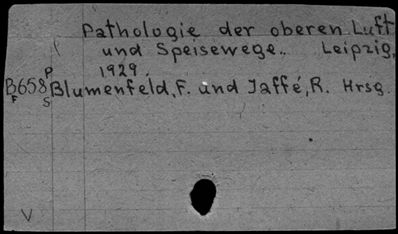 Pathologie der oberen Luft
und Speisewege.. Leipzig,
1929.
P
B658 Blumenfeld, F. und Jaffé, R. Hrsg.
F S
V